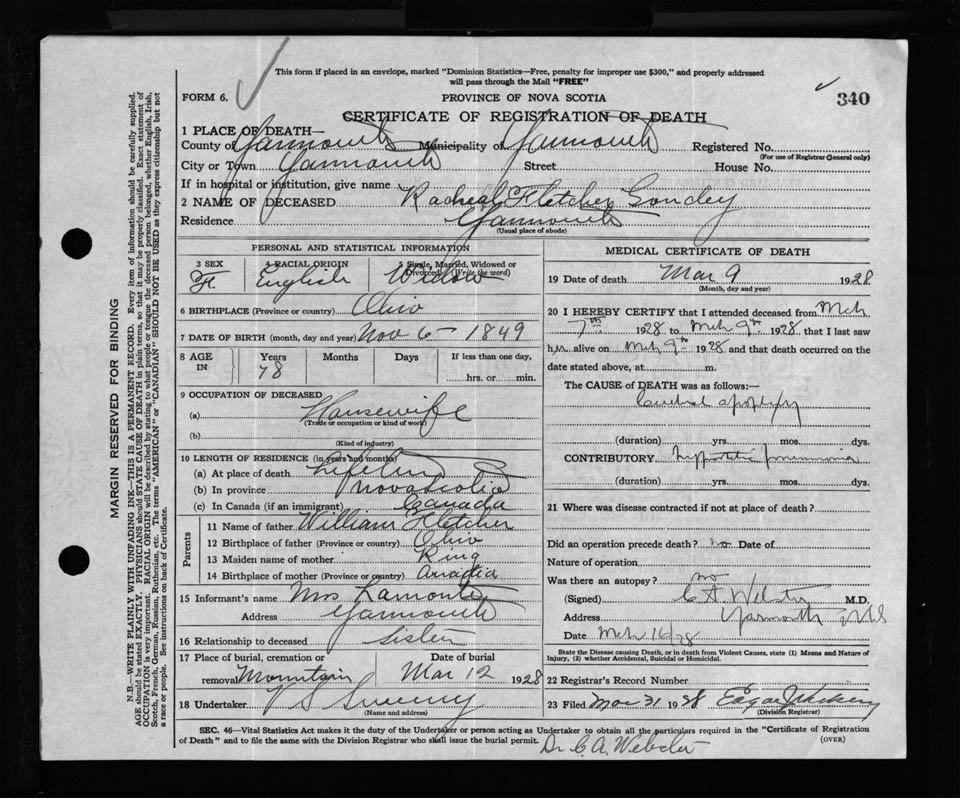 This form if placed in an envelope, marked "Dominion Statistics—Free, penalty for improper use $300," and properly addressed
will pass through the Mail "FREE"
FORM 6.
PROVINCE OF NOVA SCOTIA
340
CERTIFICATE OF REGISTRATION OF DEATH
1 PLACE OF DEATH—
County of Yarmouth Municipality of Yarmouth Registered No.
(For use of Registrar General only)
City or Town Yarmouth Street House No.
If in hospital or institution, give name
2 NAME OF DECEASED Racheal Fletcher Gondey
Residence Yarmouth
(Usual place of abode)
PERSONAL AND STATISTICAL INFORMATION
3 SEX 4 RACIAL ORIGIN 5 Single, Married, Widowed or Divorced (Write the word)
F. English Widow
6 BIRTHPLACE (Province or country) Ohio
7 DATE OF BIRTH (month, day and year) Nov 6 - 1849
8 AGE IN Years Months Days If less than one day,
78 hrs. or min.
9 OCCUPATION OF DECEASED
(a) Housewife
(Trade or occupation or kind of work)
(b)
(Kind of industry)
10 LENGTH OF RESIDENCE (in years and months)
(a) At place of death Lifetime
(b) In province Nova Scotia
(c) In Canada (if an immigrant) Canada
Parents
11 Name of father William Fletcher
12 Birthplace of father (Province or country) Ohio
13 Maiden name of mother King
14 Birthplace of mother (Province or country) Arcadia
15 Informant's name Mrs Lamonte
Address Yarmouth
16 Relationship to deceased Sister
17 Place of burial, cremation or Date of burial
removal Mountain Mar 12 1928
18 Undertaker V S Sweeny
(Name and address)
MEDICAL CERTIFICATE OF DEATH
19 Date of death Mar 9 1928
(Month, day and year)
20 I HEREBY CERTIFY that I attended deceased from Mch
7th 1928 to Mch 9th 1928, that I last saw
her alive on Mch 9th 1928 and that death occurred on the
date stated above, at m.
The CAUSE of DEATH was as follows:—
Cerebral apoplexy
(duration) yrs. mos. dys.
CONTRIBUTORY hypostatic pneumonia
(duration) yrs. mos. dys.
21 Where was disease contracted if not at place of death?
Did an operation precede death? no Date of
Nature of operation
Was there an autopsy? no
(Signed) C A Webster M.D.
Address Yarmouth N S
Date Mch 16/28
State the Disease causing Death, or in death from Violent Causes, state (1) Means and Nature of
Injury, (2) whether Accidental, Suicidal or Homicidal.
22 Registrar's Record Number
23 Filed Mar 31 1928
(Division Registrar)
SEC. 46—Vital Statistics Act makes it the duty of the Undertaker or person acting as Undertaker to obtain all the particulars required in the "Certificate of Registration
of Death" and to file the same with the Division Registrar who shall issue the burial permit. (OVER)
Dr C. A. Webster
MARGIN RESERVED FOR BINDING
N.B.—WRITE PLAINLY WITH UNFADING INK—THIS IS A PERMANENT RECORD. Every item of information should be carefully supplied.
AGE should be stated EXACTLY. PHYSICIANS should STATE CAUSE OF DEATH in plain terms, so that it may be properly classified. Exact statement of
OCCUPATION is very important. RACIAL ORIGIN will be described by stating to what people or tongue the deceased person belonged, whether English, Irish,
Scotch, French, German, Russian, Ruthenian, etc. The terms "AMERICAN" or "CANADIAN" SHOULD NOT BE USED as they express citizenship but not
a race or people. See instructions on back of Certificate.